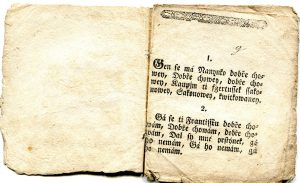 1.
Gen se má Nanynko dobře cho-
wey, Dobře chowey, dobře cho-
wey, Kaupjm ti kgertussek sako-
nowey, Sakonowey, kwitkowaney.
2.
Gá se ti Frantissku dobře cho-
wám, Dobře chowám, dobře cho-
wám, Dal sy mně prstýnek, gá
ho nemám, Gá ho nemám, gá
ho nemám.